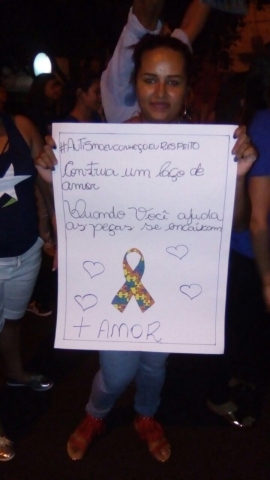 #AUTISMOEUCONHEÇOEURESPEITO
Construa um laço de
amor
Quando Você ajuda
as peças se encaixam
+ AMOR